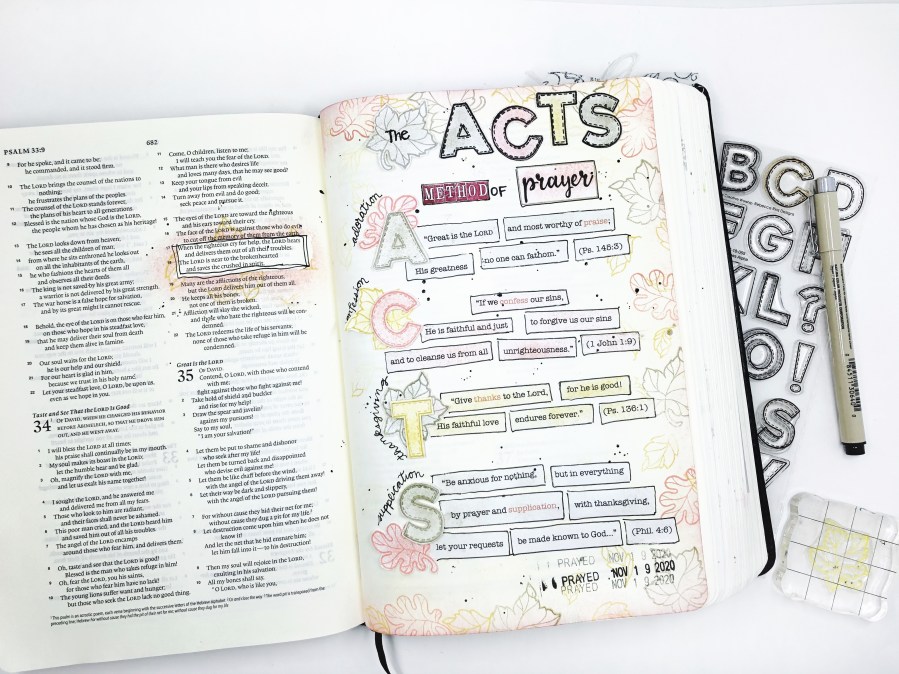 PSALM 33:9
682
9 For he spoke, and it came to be;
he commanded, and it stood firm.
10 The LORD brings the counsel of the nations to
nothing;
he frustrates the plans of the peoples.
11 The counsel of the LORD stands forever,
the plans of his heart to all generations.
12 Blessed is the nation whose God is the LORD,
the people whom he has chosen as his heritage!
13 The LORD looks down from heaven;
he sees all the children of man;
14 from where he sits enthroned he looks out
on all the inhabitants of the earth,
15 he who fashions the hearts of them all
and observes all their deeds.
16 The king is not saved by his great army;
a warrior is not delivered by his great strength.
17 The war horse is a false hope for salvation,
and by its great might it cannot rescue.
18 Behold, the eye of the LORD is on those who fear him,
on those who hope in his steadfast love,
19 that he may deliver their soul from death
and keep them alive in famine.
20 Our soul waits for the LORD;
he is our help and our shield.
21 For our heart is glad in him,
because we trust in his holy name.
22 Let your steadfast love, O LORD, be upon us,
even as we hope in you.
Taste and See That the LORD Is Good
34 OF DAVID, WHEN HE CHANGED HIS BEHAVIOR
BEFORE ABIMELECH, SO THAT HE DROVE HIM
OUT, AND HE WENT AWAY.
1 I will bless the LORD at all times;
his praise shall continually be in my mouth.
2 My soul makes its boast in the LORD;
let the humble hear and be glad.
3 Oh, magnify the LORD with me,
and let us exalt his name together!
4 I sought the LORD, and he answered me
and delivered me from all my fears.
5 Those who look to him are radiant,
and their faces shall never be ashamed.
6 This poor man cried, and the LORD heard him
and saved him out of all his troubles.
7 The angel of the LORD encamps
around those who fear him, and delivers them.
8 Oh, taste and see that the LORD is good!
Blessed is the man who takes refuge in him!
9 Oh, fear the LORD, you his saints,
for those who fear him have no lack!
10 The young lions suffer want and hunger;
but those who seek the LORD lack no good thing.
11 Come, O children, listen to me;
I will teach you the fear of the LORD.
12 What man is there who desires life
and loves many days, that he may see good?
13 Keep your tongue from evil
and your lips from speaking deceit.
14 Turn away from evil and do good;
seek peace and pursue it.
15 The eyes of the LORD are toward the righteous
and his ears toward their cry.
16 The face of the LORD is against those who do evil,
to cut off the memory of them from the earth.
When the righteous cry for help, the LORD hears
and delivers them out of all their troubles.
The LORD is near to the brokenhearted
and saves the crushed in spirit.
19 Many are the afflictions of the righteous,
but the LORD delivers him out of them all.
20 He keeps all his bones;
not one of them is broken.
21 Affliction will slay the wicked,
and those who hate the righteous will be con-
demned.
22 The LORD redeems the life of his servants;
none of those who take refuge in him will be
condemned.
Great Is the LORD
35 OF DAVID.
Contend, O LORD, with those who contend
with me;
fight against those who fight against me!
2 Take hold of shield and buckler
and rise for my help!
3 Draw the spear and javelin
against my pursuers!
Say to my soul,
"I am your salvation!"
4 Let them be put to shame and dishonor
who seek after my life!
Let them be turned back and disappointed
who devise evil against me!
5 Let them be like chaff before the wind,
with the angel of the LORD driving them away!
6 Let their way be dark and slippery,
with the angel of the LORD pursuing them!
7 For without cause they hid their net for me;
without cause they dug a pit for my life.
8 Let destruction come upon him when he does not
know it!
And let the net that he hid ensnare him;
let him fall into it—to his destruction!
9 Then my soul will rejoice in the LORD,
exulting in his salvation.
10 All my bones shall say,
"O LORD, who is like you,
The ACTS
METHOD OF prayer
adoration
A
"Great is the Lord and most worthy of praise;
His greatness no one can fathom." (Ps. 145:3)
confession
C
"If we confess our sins,
He is faithful and just to forgive us our sins
and to cleanse us from all unrighteousness." (1 John 1:9)
thanksgiving
T
"Give thanks to the Lord, for he is good!
His faithful love endures forever." (Ps. 136:1)
supplication
S
"Be anxious for nothing, but in everything
by prayer and supplication, with thanksgiving,
let your requests be made known to God..." (Phil. 4:6)
PRAYED NOV 19 2020
PRAYED NOV 19 2020
PRAYED NOV 19 2020
B C D
F G H
K L
?
O !
S
Y